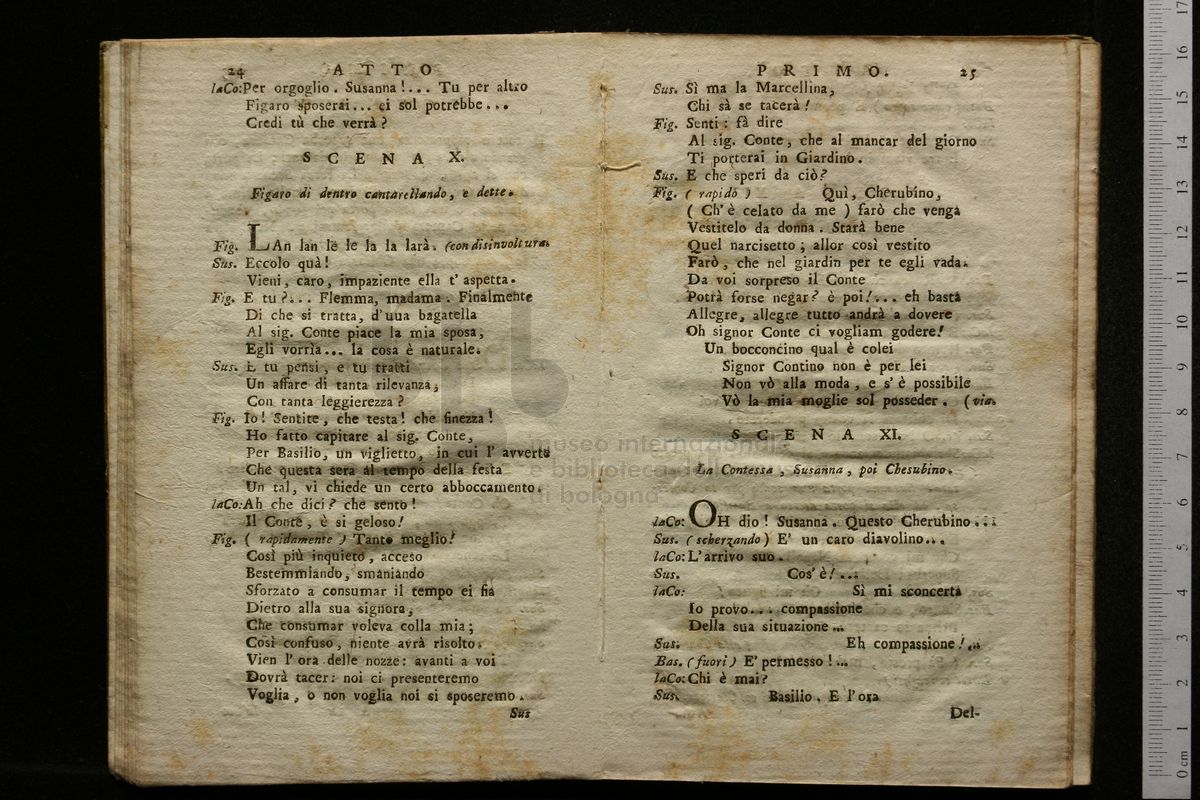 24 ATTO
laCo: Per orgoglio. Susanna!... Tu per altro
Figaro sposerai... ei sol potrebbe...
Credi tù che verrà?
SCENA X.
Figaro di dentro cantarellando, e dette.
Fig. LAn lan le le la la larà. (con disinvoltura.
Sus. Eccolo quà!
Vieni, caro, impaziente ella t'aspetta.
Fig. E tu?... Flemma, madama. Finalmente
Di che si tratta, d'uua bagatella
Al sig. Conte piace la mia sposa,
Egli vorrìa... la cosa è naturale.
Sus. E tu pensi, e tu tratti
Un affare di tanta rilevanza,
Con tanta leggierezza?
Fig. Io! Sentite, che testa! che finezza!
Ho fatto capitare al sig. Conte,
Per Basilio, un viglietto, in cui l'avverto
Che questa sera al tempo della festa
Un tal, vi chiede un certo abboccamento.
laCo: Ah che dici? che sento!
Il Conte, è si geloso!
Fig. (rapidamente) Tanto meglio!
Così più inquieto, acceso
Bestemmiando, smaniando
Sforzato a consumar il tempo ei fia
Dietro alla sua signora,
Che consumar voleva colla mia;
Così confuso, niente avrà risolto.
Vien l'ora delle nozze: avanti a voi
Dovrà tacer: noi ci presenteremo
Voglia, o non voglia noi si sposeremo.
Sus
PRIMO. 25
Sus. Sì ma la Marcellina,
Chi sà se tacerà!
Fig. Senti: fà dire
Al sig. Conte, che al mancar del giorno
Ti porterai in Giardino.
Sus. E che speri da ciò?
Fig. (rapido) Quì, Cherubino,
(Ch'è celato da me) farò che venga
Vestitelo da donna. Starà bene
Quel narcisetto; allor così vestito
Farò, che nel giardin per te egli vada.
Da voi sorpreso il Conte
Potrà forse negar? è poi!... eh basta
Allegre, allegre tutto andrà a dovere
Oh signor Conte ci vogliam godere!
Un bocconcino qual è colei
Signor Contino non è per lei
Non vò alla moda, e s'è possibile
Vò la mia moglie sol posseder. (via.
SCENA XI.
La Contessa, Susanna, poi Chesubino.
laCo: OH dio! Susanna. Questo Cherubino...
Sus. (scherzando) E' un caro diavolino...
laCo: L'arrivo suo.
Sus. Cos'è!...
laCo: Sì mi sconcerta
Io provo... compassione
Della sua situazione...
Sus. Eh compassione!...
Bas. (fuori) E' permesso!...
laCo: Chi è mai?
Sus. Basilio. E l'ora
Del-
museo internazionale
e biblioteca della
di bologna
0 cm 1 2 3 4 5 6 7 8 9 10 11 12 13 14 15 16 17